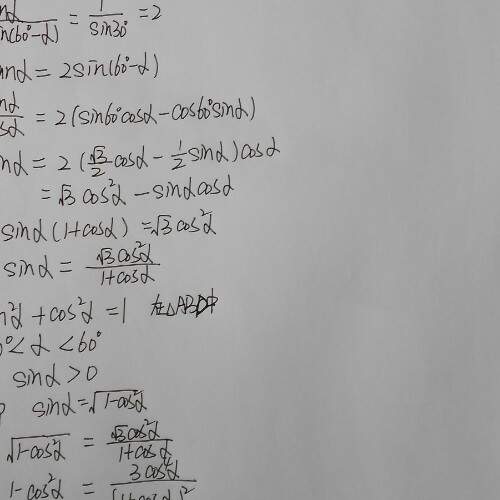 sin(60°-α) = 1/sin30° = 2
tanα = 2sin(60°-α)
= 2(sin60°cosα-cos60°sinα)
sinα = 2(√3/2 cosα - 1/2 sinα)cosα
= √3 cos²α - sinαcosα
sinα(1+cosα) = √3cos²α
sinα = √3cos²α/1+cosα
sin²α + cos²α = 1 在△ABD中
0°<α<60°
sinα>0
sinα=√1-cos²α
√1-cos²α = √3cos²α/1+cosα
1-cos²α = 3cos⁴α/(1+cosα)²